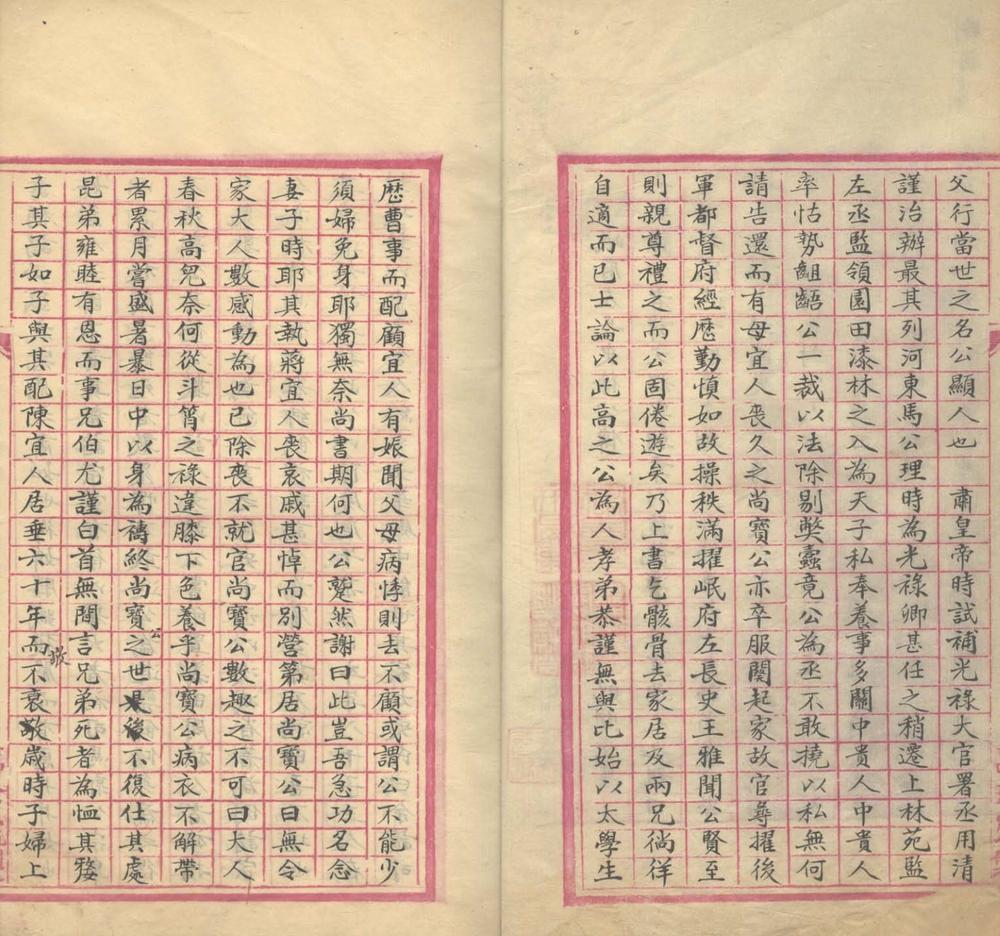 父行當世之名公顯人也　肅皇帝時試補光祿大官署丞用清
謹治辦最其列河東馬公理時為光祿卿甚任之稍遷上林苑監
左丞監領園田漆林之入為天子私奉養事多關中貴人中貴人
率怙勢齟齬公一裁以法除剔獘蠹竟公為丞不敢撓以私無何
請告還而有母宜人喪久之尚寶公亦卒服闋起家故官尋擢後
軍都督府經歷勤慎如故操秩滿擢岷府左長史王雅聞公賢至
則親尊禮之而公固倦遊矣乃上書乞骸骨去家居及兩兄徜徉
自適而已士論以此高之公為人孝弟恭謹無與比始以太學生
歷曹事而配顧宜人有娠聞父母病悸則去不顧或謂公不能少
須婦免身耶獨無奈尚書期何也公蹵然謝曰此豈吾急功名念
妻子時耶其執蔣宜人喪哀戚甚悼而別營第居尚寶公曰無令
家大人數感動為也已除喪不就官尚寶公數趣之不可曰大人
春秋高兒奈何從斗筲之祿違膝下色養乎尚寶公病衣不解帶
者累月嘗盛暑暴日中以身為禱終尚寶公之世後不復仕其處
昆弟雍睦有恩而事兄伯尤謹白首無間言兄弟死者為恤其婺
子其子如子與其配陳宜人居垂六十年而不衰敬歲時子婦上